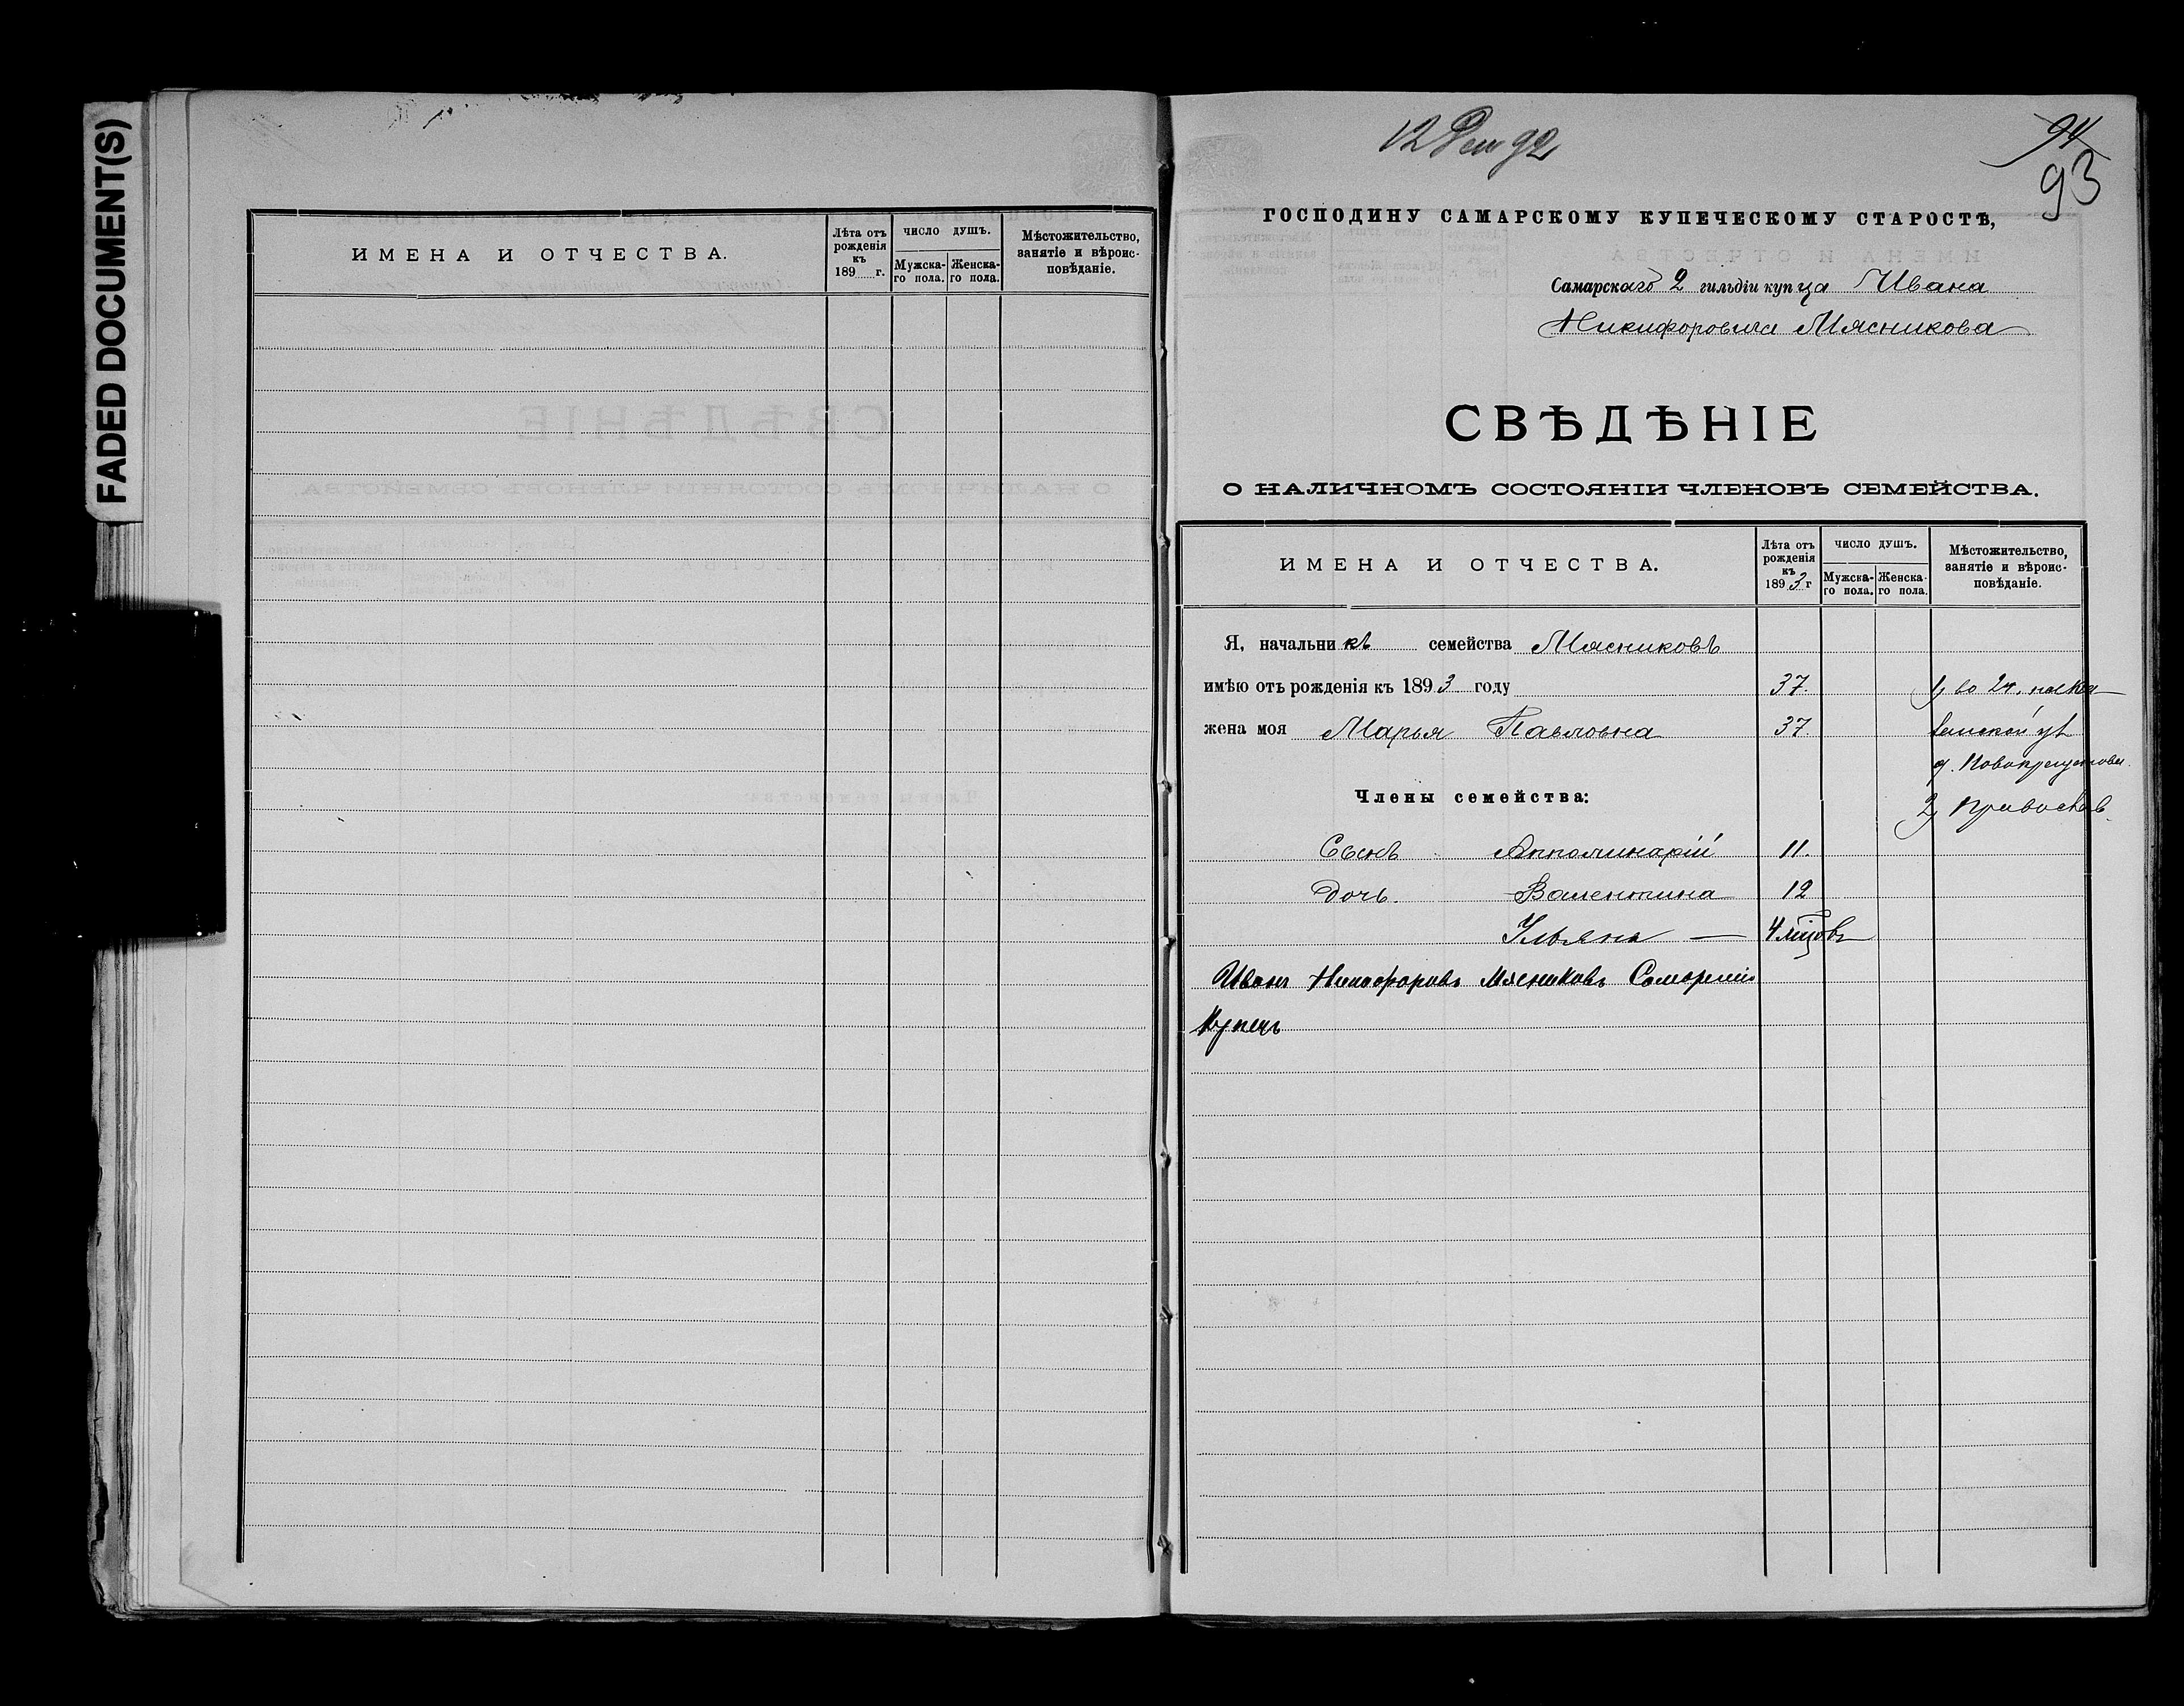 FADED DOCUMENT(S)
ИМЕНА И ОТЧЕСТВА.
Лѣта отъ рожденія къ 189 г.
ЧИСЛО ДУШЪ.
Мужска-го пола.
Женска-го пола.
Мѣстожительство, занятіе и вѣроис-повѣданіе.
12 Дек 92
94
93
ГОСПОДИНУ САМАРСКОМУ КУПЕЧЕСКОМУ СТАРОСТѢ,
Самарскаго 2 гильдіи купца Ивана
Никифоровича Мясникова
СВѢДѢНІЕ
О НАЛИЧНОМЪ СОСТОЯНІИ ЧЛЕНОВЪ СЕМЕЙСТВА.
ИМЕНА И ОТЧЕСТВА.
Лѣта отъ рожденія къ 1893 г
ЧИСЛО ДУШЪ.
Мужска-го пола.
Женска-го пола.
Мѣстожительство, занятіе и вѣроис-повѣданіе.
Я, начальникъ семейства Мясниковъ
имѣю отъ рожденія къ 1893 году 37. 1, во 2 ч.
жена моя Марья Павловна 37.
Члены семейства:
2, Православ.
Сынъ Апполинарій 11.
Дочь. Валентина 12
Ульяна — 4 мцовъ
Иванъ Никифоровъ Мясниковъ Самарскій
Купецъ